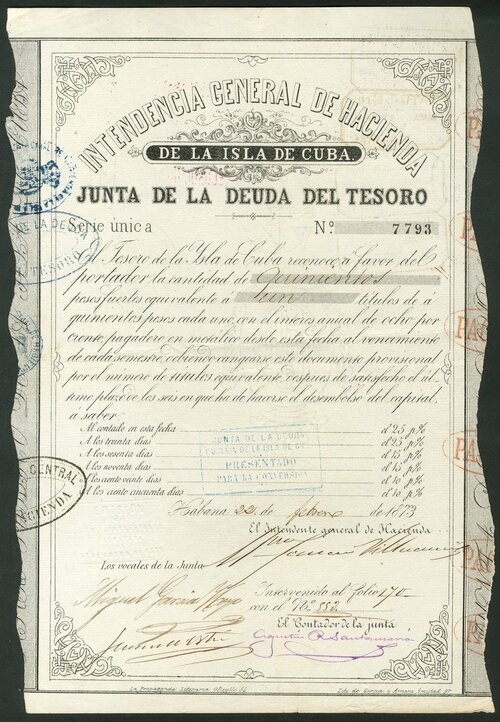 INTENDENCIA GENERAL DE HACIENDA
DE LA ISLA DE CUBA.
JUNTA DE LA DEUDA DEL TESORO
Serie única Nº 7793
El Tesoro de la Ysla de Cuba reconoce á favor del
portador la cantidad de Quinientos
pesos fuertes equivalente á un títulos de á
quinientos pesos cada uno con el interes anual de ocho por
ciento pagadero en metálico desde esta fecha al vencimiento
de cada semestre, debiendo cangearse este documento provisional
por el número de títulos equivalente, despues de satisfecho el úl-
timo plazo de los seis en que ha de hacerse el desembolso del capital,
á saber
Al contado en esta fecha el 25 p%
A los treinta dias el 25 p%
A los sesenta dias el 15 p%
A los noventa dias el 15 p%
A los ciento veinte dias el 10 p%
A los ciento cincuenta dias el 10 p%
JUNTA DE LA DEUDA
PUBLICA DE LA ISLA DE CU
PRESENTADO
PARA LA CONVERSION
Habana 22 de febrero de 1873
El Intendente general de Hacienda
Los vocales de la Junta
Miguel Garcia Hoyo
Intervenido al folio 170
con el Nº 552
El Contador de la junta
Agustin R. Santamaria
DE LA DE
TESORO
CENTRAL
HACIENDA
PA
PA
PA
PA
La Propaganda Literaria O'Reilly 54
Lito. de Garcia y